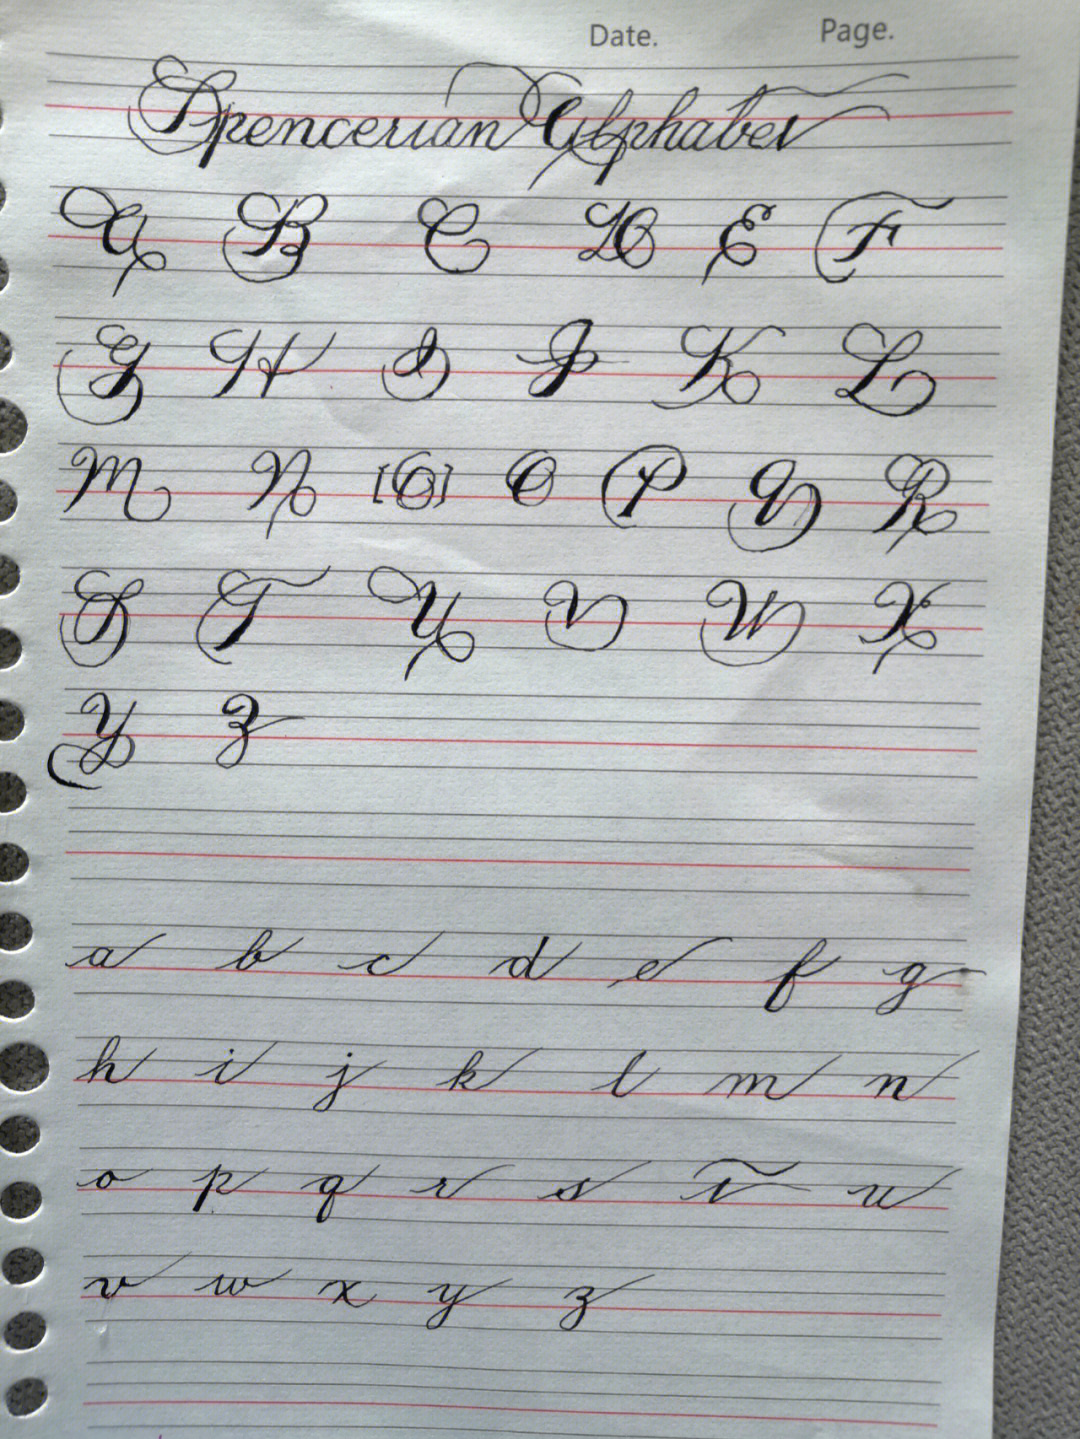 Date. Page.
Spencerian Alphabet
A B C D E F
G H I J K L
M N [O] O P Q R
S T U V W X
Y Z
a b c d e f g
h i j k l m n
o p q r s t u
v w x y z